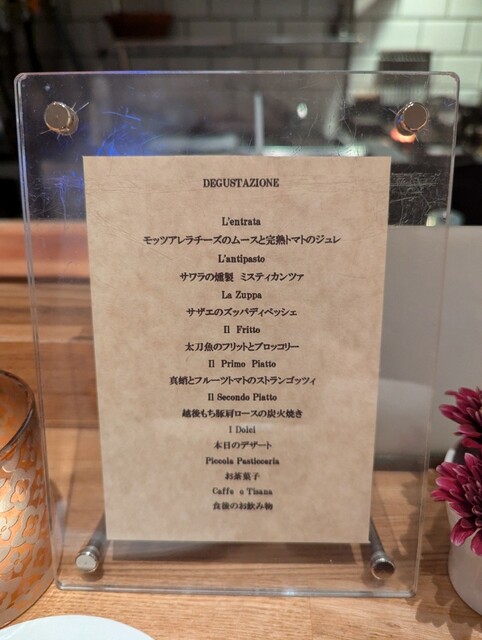 DEGUSTAZIONE
L'entrata
モッツアレラチーズのムースと完熟トマトのジュレ
L'antipasto
サワラの燻製 ミスティカンツァ
La Zuppa
サザエのズッパディペッシェ
Il Fritto
太刀魚のフリットとブロッコリー
Il Primo Piatto
真蛸とフルーツトマトのストランゴッツィ
Il Secondo Piatto
越後もち豚肩ロースの炭火焼き
I Dolci
本日のデザート
Piccola Pasticceria
お茶菓子
Caffe o Tisana
食後のお飲み物